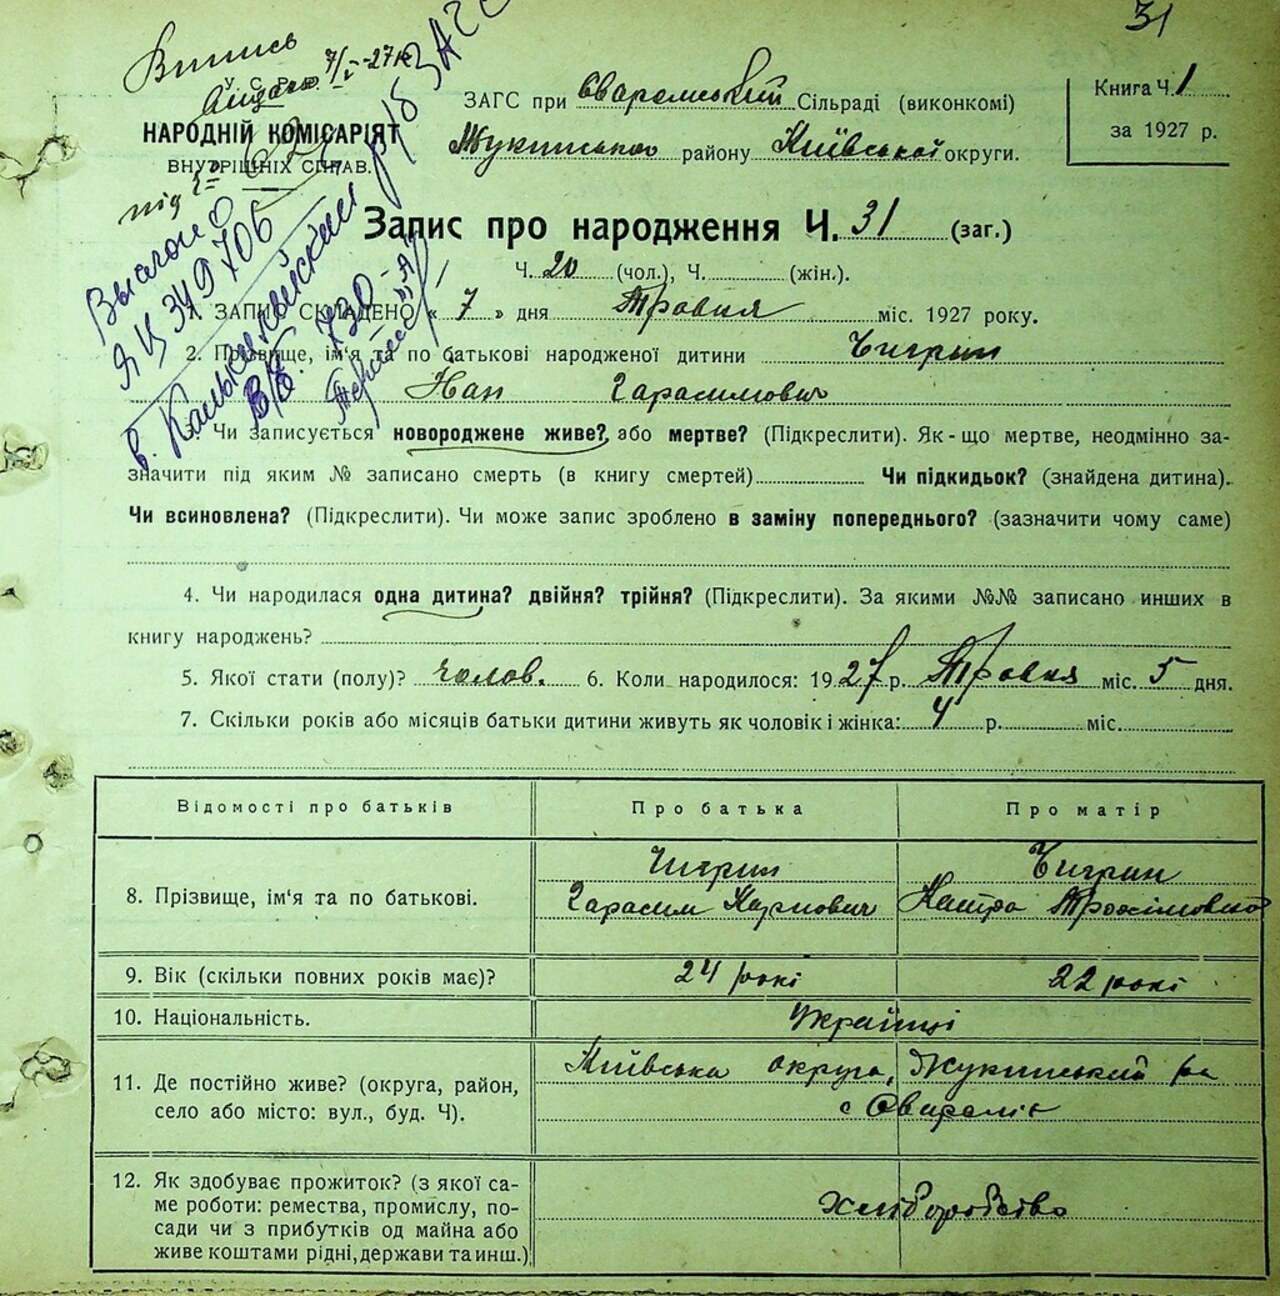 31
Витпись
У. С. Р. Р.
7/V-27 р.
НАРОДНІЙ КОМІСАРІЯТ
ВНУТРІШНІХ СПРАВ.
ЗАГС при Сваромський Сільраді (виконкомі)
Жукинського району Київської округи.
Книга Ч. 1
за 1927 р.
ЯЦ 349706
Запис про народження Ч. 31 (заг.)
Ч. 20 (чол.), Ч. (жін.).
1. ЗАПИС СКЛАДЕНО « 7 » дня Травня міс. 1927 року.
2. Прізвище, ім'я та по батькові народженої дитини Чигрин
Іван Гарасимович
3. Чи записується новороджене живе? або мертве? (Підкреслити). Як-що мертве, неодмінно за-
значити під яким № записано смерть (в книгу смертей) Чи підкидьок? (знайдена дитина).
Чи всиновлена? (Підкреслити). Чи може запис зроблено в заміну попереднього? (зазначити чому саме)
4. Чи народилася одна дитина? двійня? трійня? (Підкреслити). За якими №№ записано инших в
книгу народжень?
5. Якої стати (полу)? чолов. 6. Коли народилося: 1927 р. Травня міс. 5 дня.
7. Скільки років або місяців батьки дитини живуть як чоловік і жінка: 4 р. міс.
Відомості про батьків Про батька Про матір
Чигрин Чигрин
8. Прізвище, ім'я та по батькові. Гарасим Трохимовна
9. Вік (скільки повних років має)? 24 рокі 22 рокі
10. Національність. Українці
11. Де постійно живе? (округа, район, село або місто: вул., буд. Ч). Київська округа, Жукинський ра
с Сваромьє
12. Як здобуває прожиток? (з якої са-
ме роботи: ремества, промислу, по-
сади чи з прибутків од майна або
живе коштами рідні, держави та инш.) хліборобство